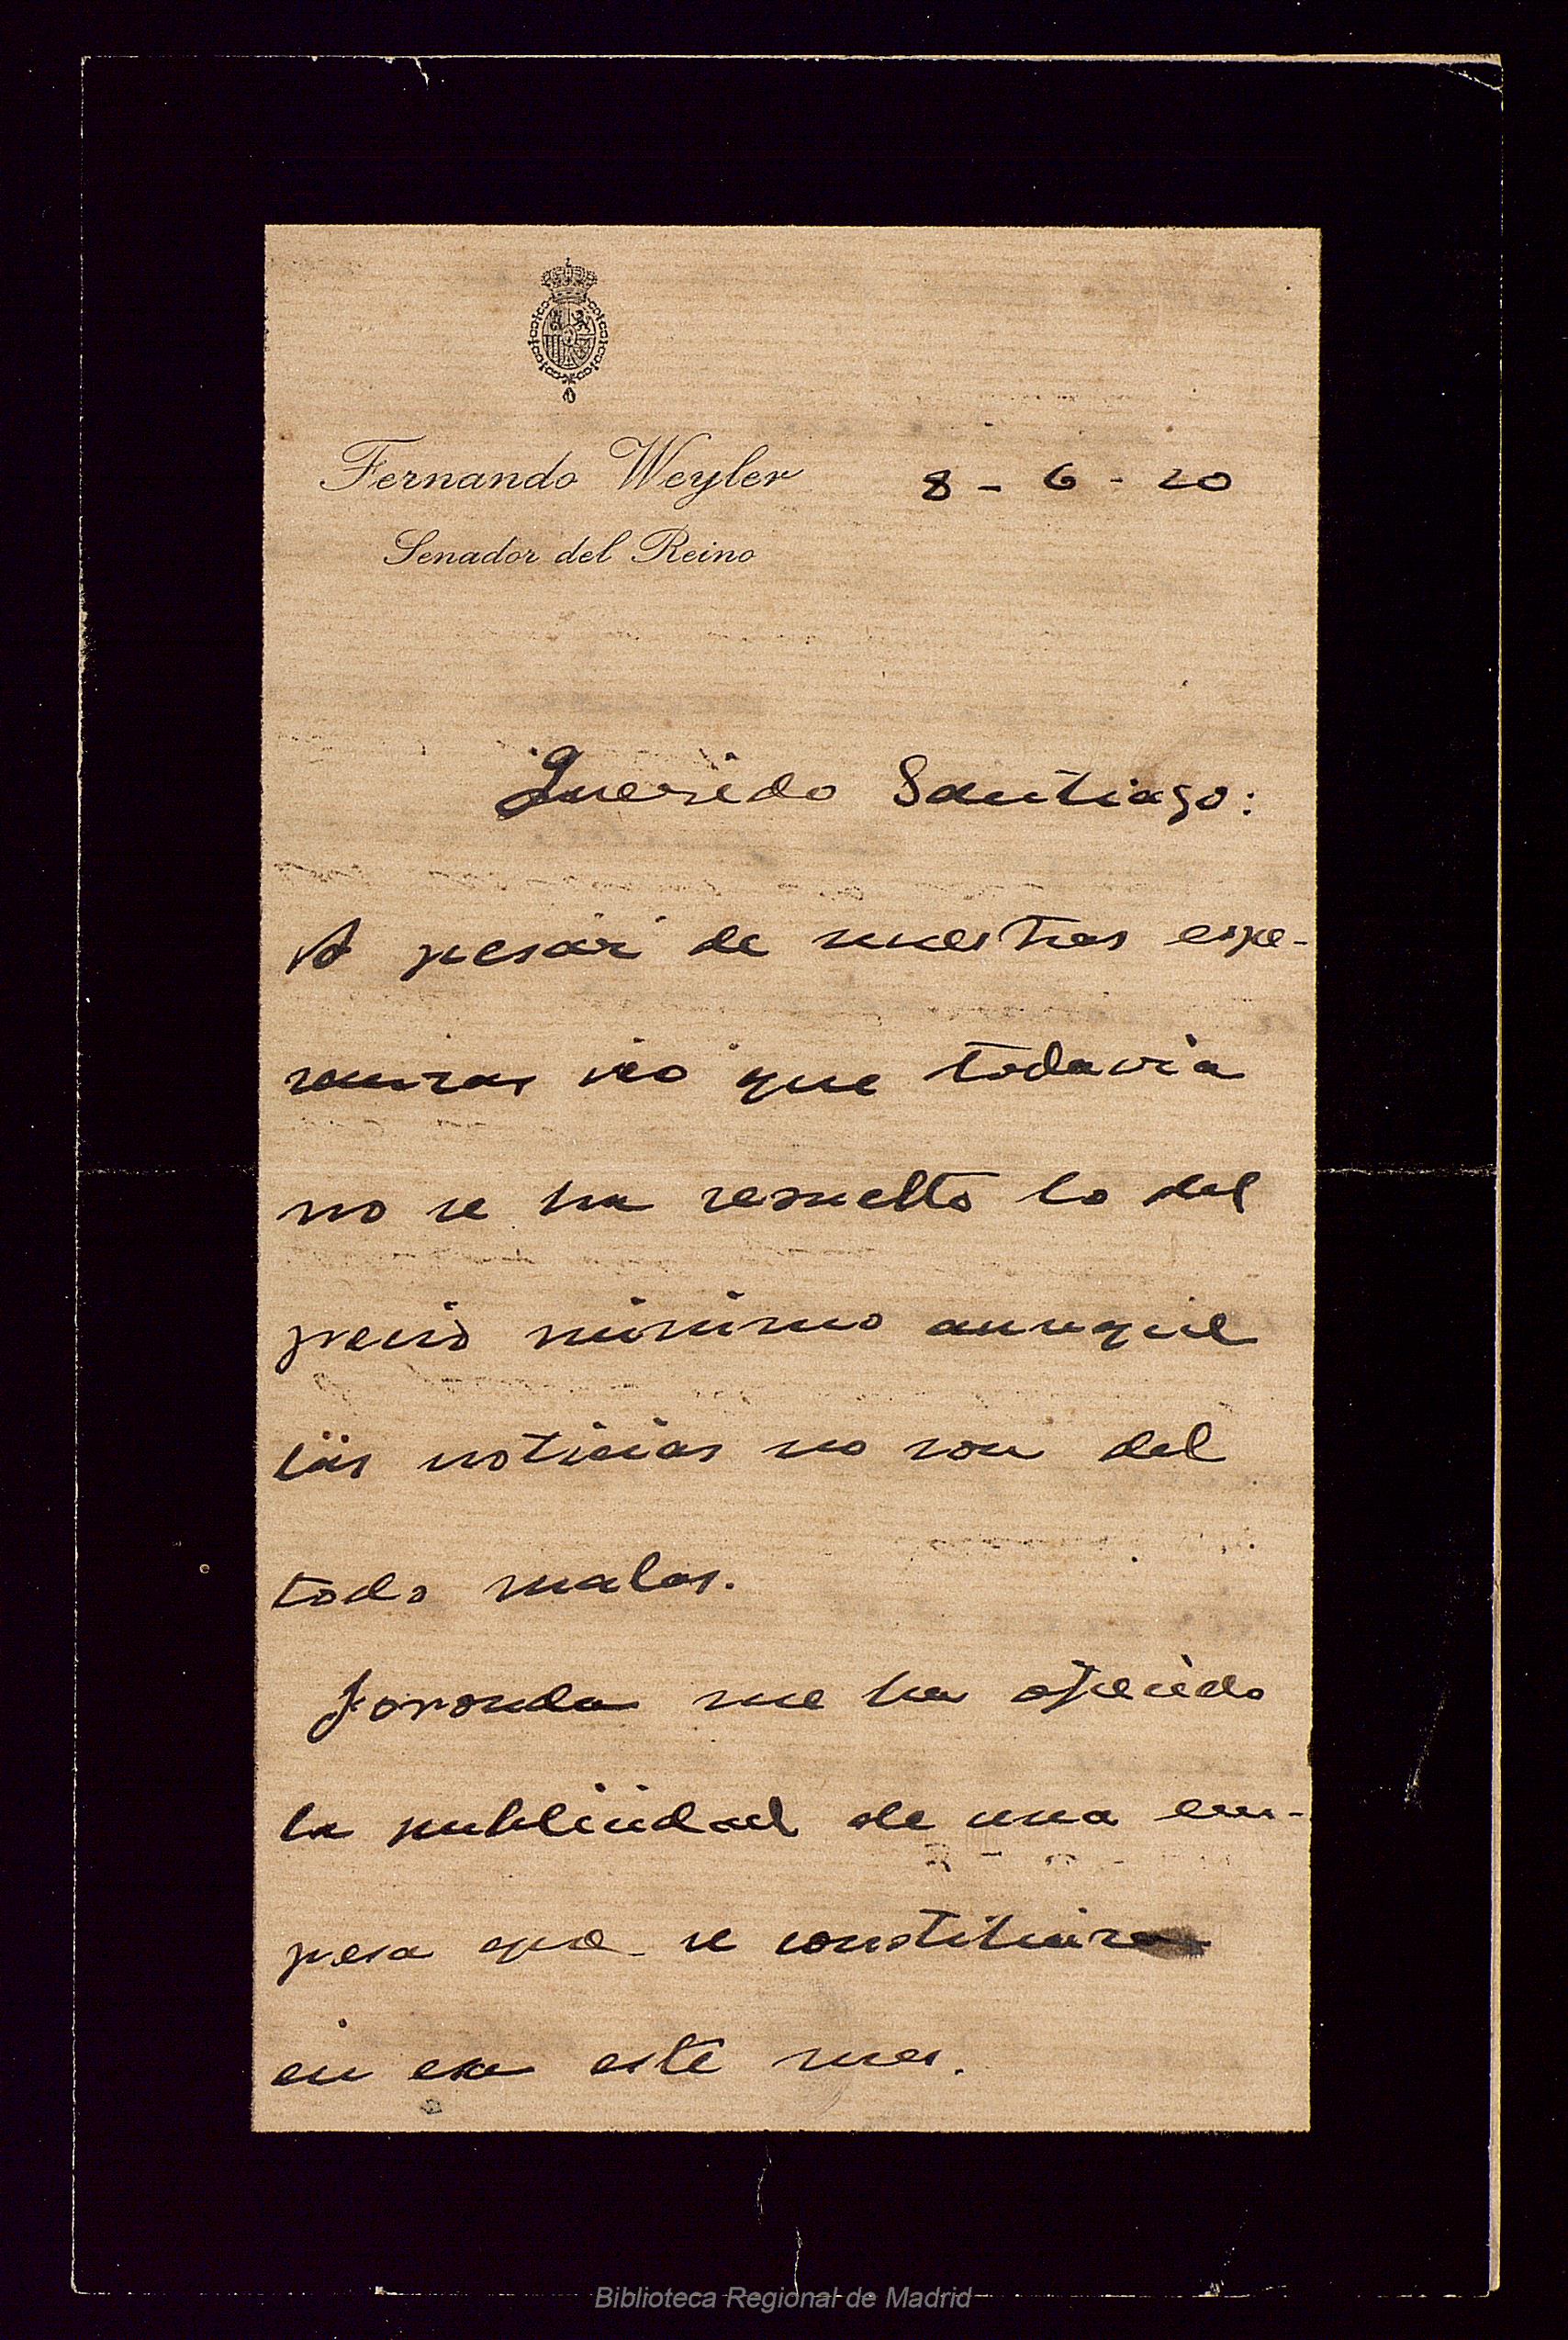 Fernando Weyler 8 - 6 - 20
Senador del Reino
Querido Santiago:
A pesar de nuestras espe-
ranzas veo que todavía
no se ha resuelto lo del
precio minimo aunque
las noticias no son del
todo malas.
Foronda me ha ofrecido
la publicidad de una em-
presa que se constituira
en esa este mes.
Biblioteca Regional de Madrid